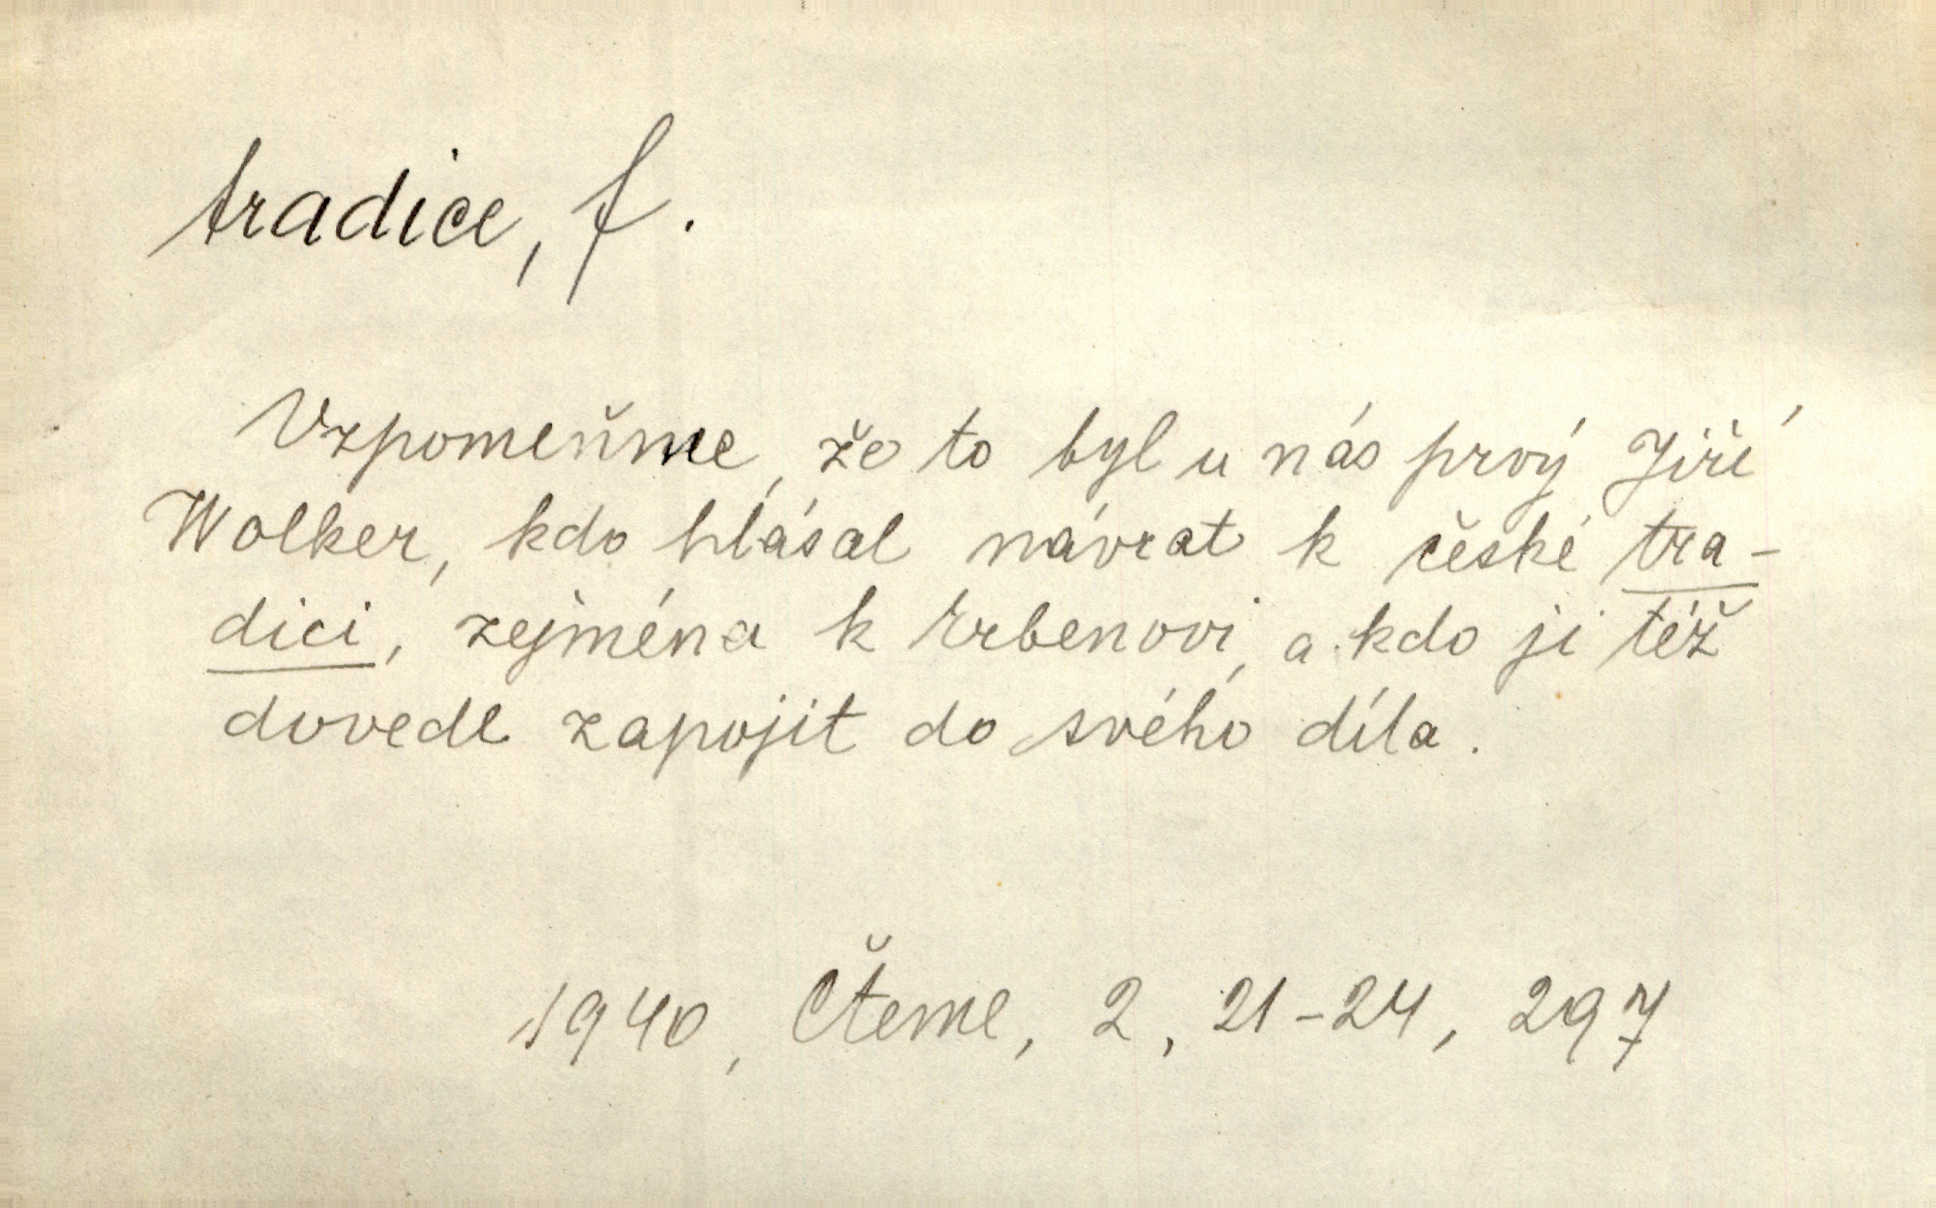 tradice, f.
Vzpomeňme, že to byl u nás prvý Jiří
Wolker, kdo hlásal návrat k české tra-
dici, zejména k Erbenovi, a kdo ji též
dovedl zapojit do svého díla.
1940, Čteme, 2, 21-24, 297